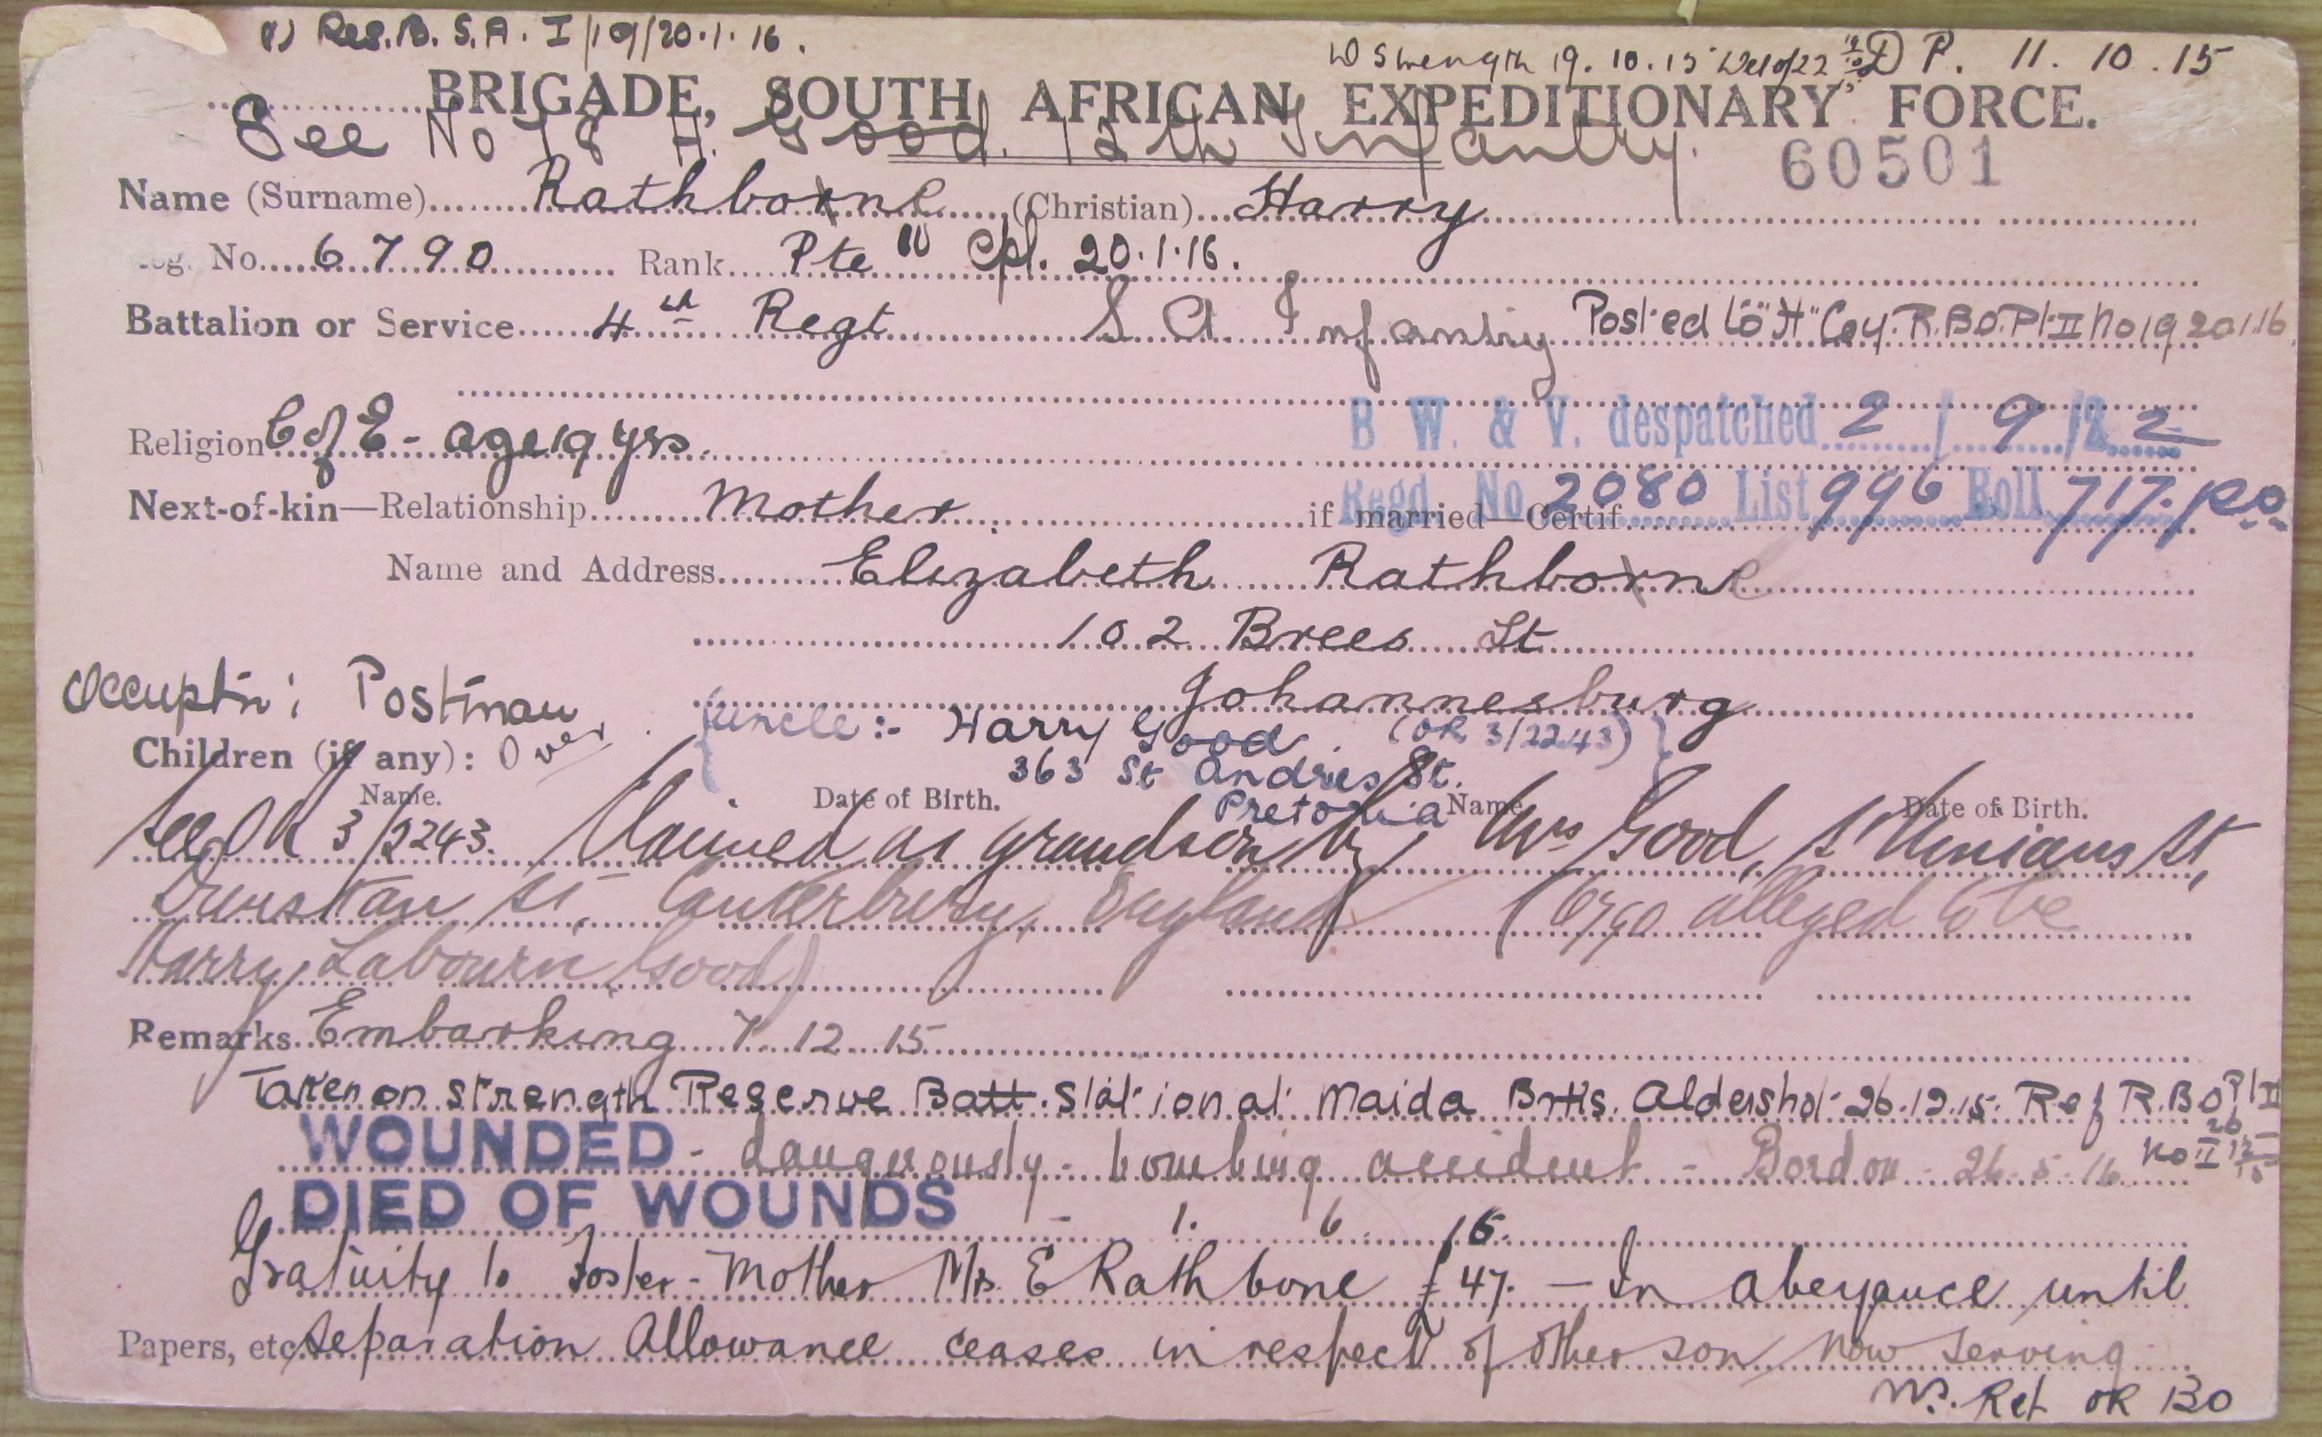 (1) Res. B. S. A. I/19/20.1.16.
Strength 19.10.15 D P. 11.10.15
BRIGADE, SOUTH AFRICAN EXPEDITIONARY FORCE.
See No 18 H. Good. 12th Infantry.
60501
Name (Surname) Rathborne (Christian) Harry
Reg. No. 6790 Rank Pte (1) Cpl. 20.1.16.
Battalion or Service 4th Regt S A Infantry Posted to "H" Coy. R.B.O. Pt. II No 19 20.1.16.
B W. & V. despatched 2/9/22
Religion C of E - age 19 yrs.
Regd. No 2080 List 996 Roll 717. p.o.
Next-of-kin—Relationship Mother. if married—Certif
Name and Address Elizabeth Rathborne
102 Brees St
Johannesburg
Occuptn: Postman
Uncle:- Harry Good. (OR 3/2243)
363 St Andries St.
Pretoria
Children (if any): Over
Name. Date of Birth. Name Date of Birth.
See OR 3/2243. Claimed as grandson by Mrs Good, St
Dunstan St. Canterbury, England (6790 alleged to be
Harry Labourn Good)
Remarks. Embarking 7 12 15
Taken on strength Reserve Batt. Station at Maida Brks. Aldershot 26.12.15. Ref R.B.O. Pt II
No II 26/12/15
WOUNDED - dangerously - bombing accident - Bordon 26.5.16
DIED OF WOUNDS - 1. 6 16.
Gratuity to Foster-Mother Mrs. E Rathbone £47. — In abeyance until
Papers, etc. Separation Allowance ceases in respect of other son now serving
Ref OR BO